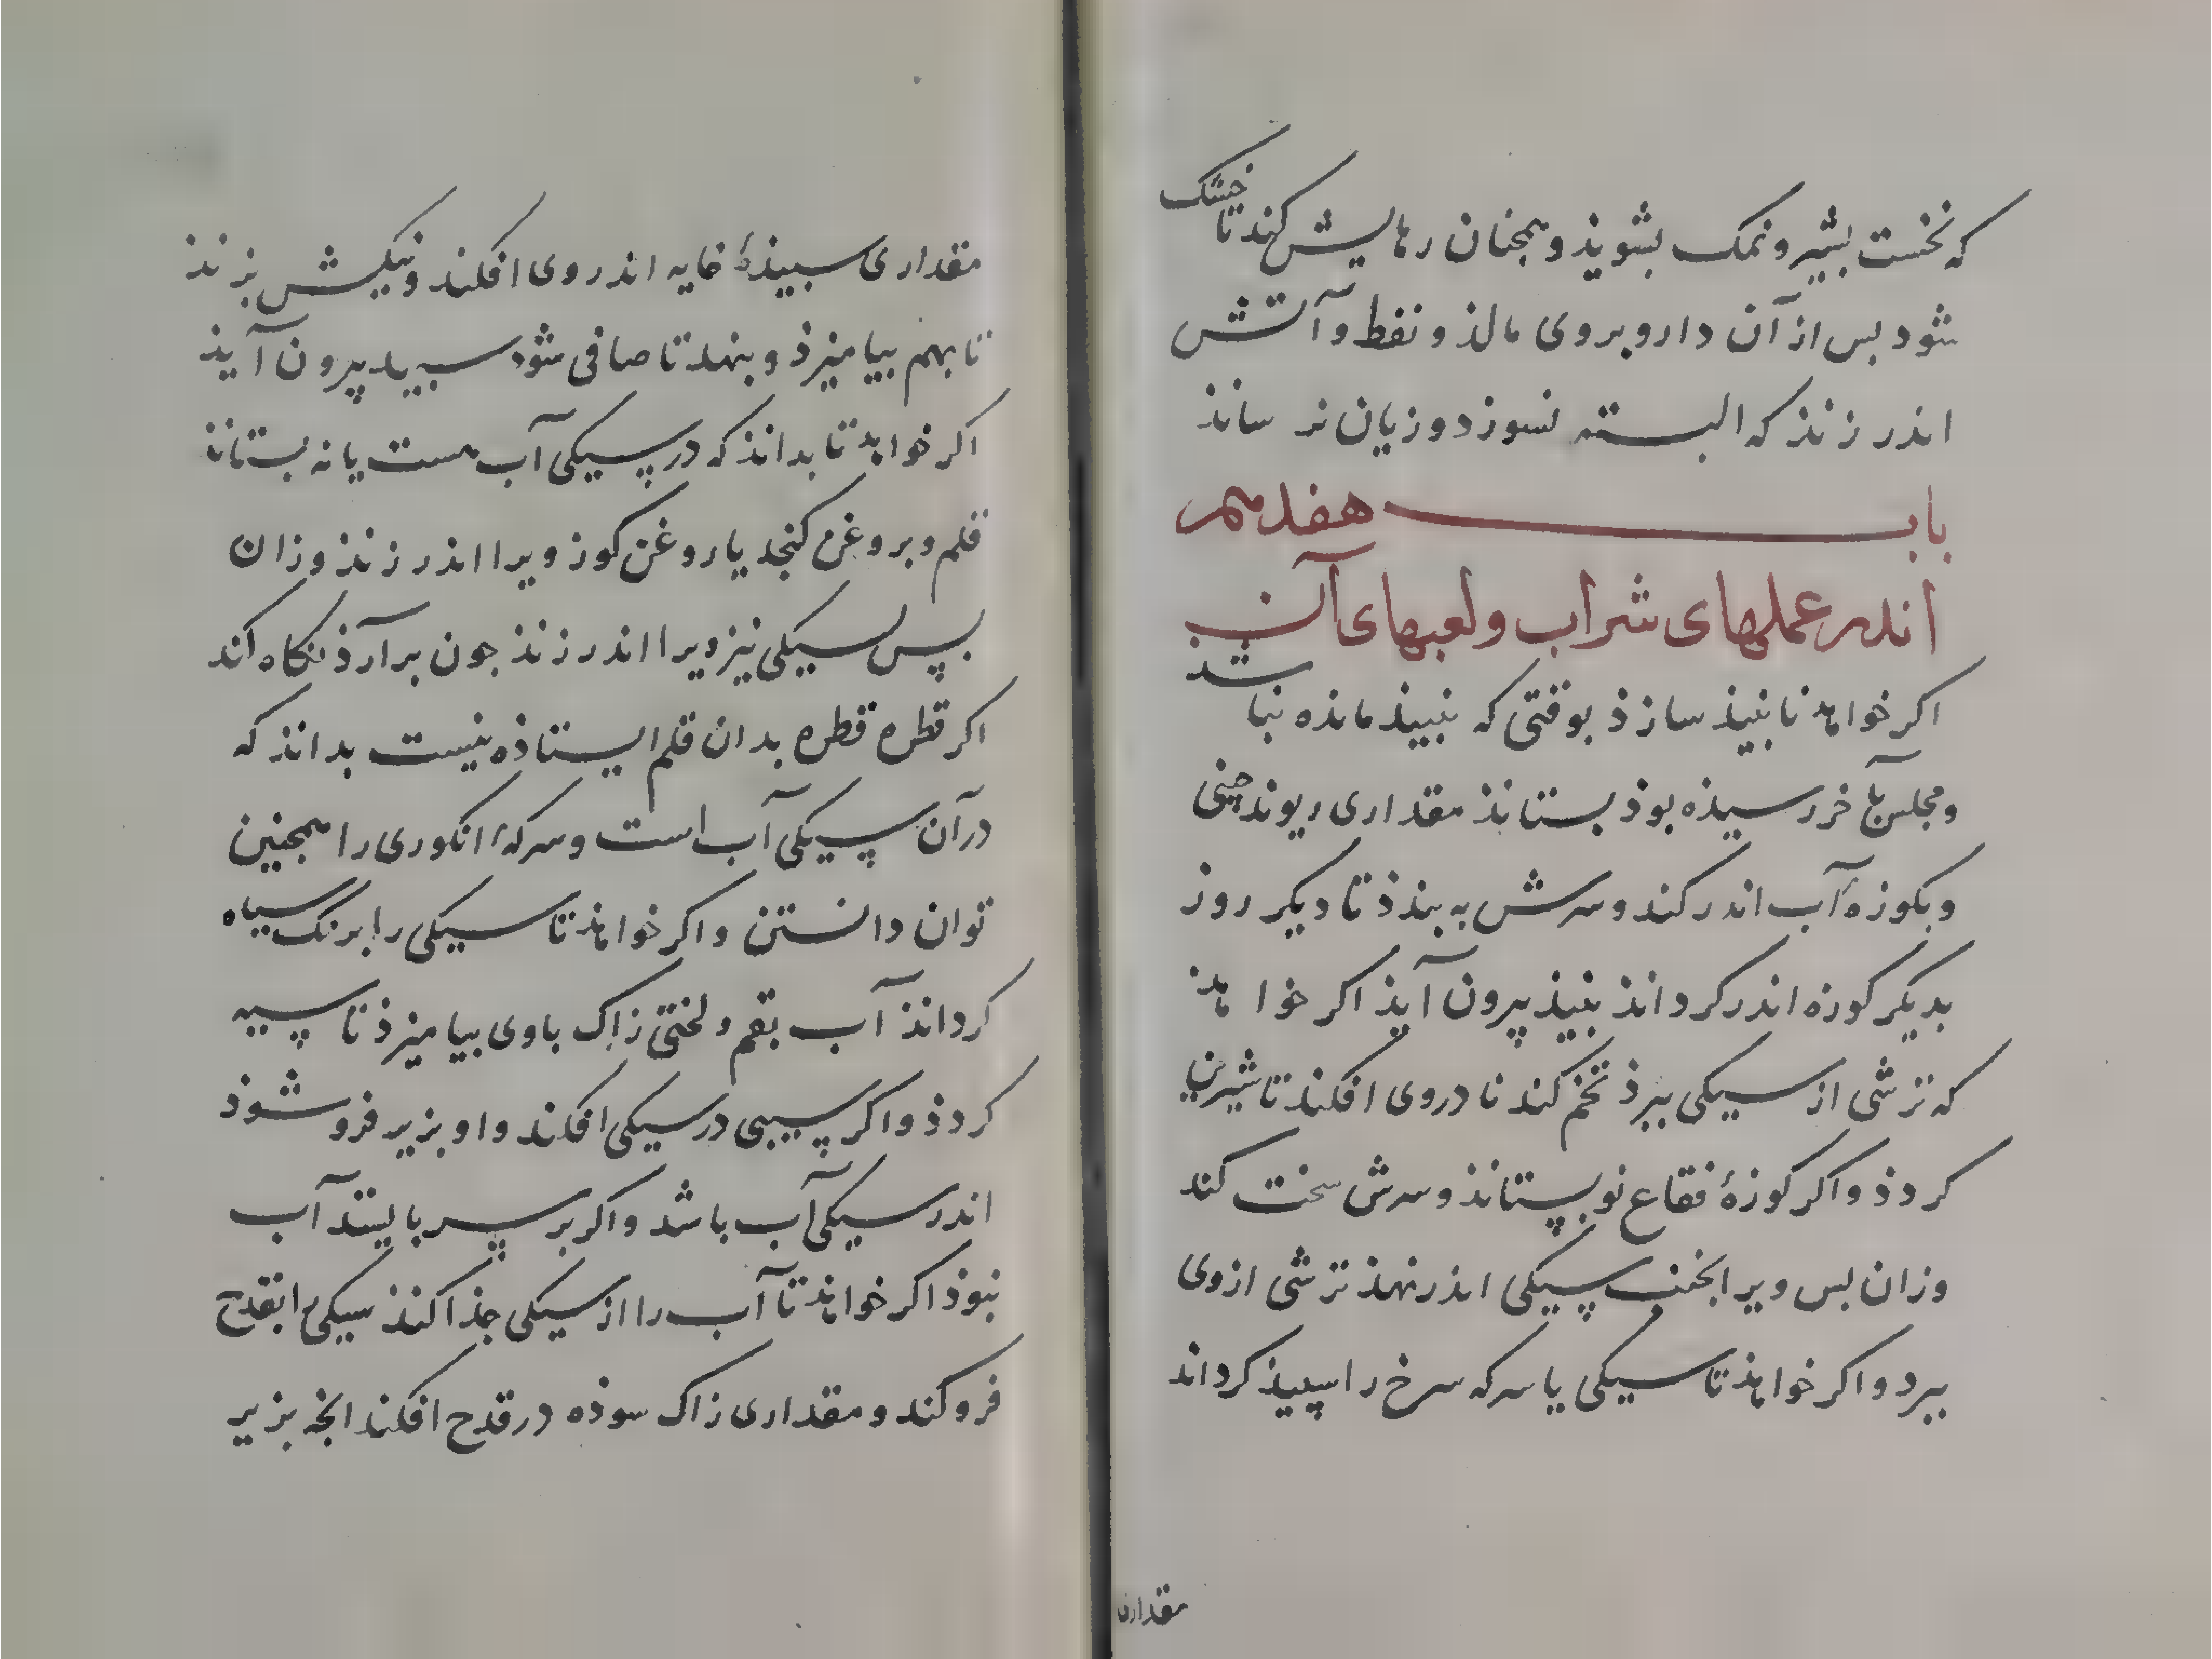 که نخست بشیر و نمک بشوید و همجنان رهایش کند تا خشک
شود بس از آن دارو بروی مالذ و نفط و آتش
اندر زنذ که البسته نسوزد و زیان نرسانذ
باب هفدهم
اندر عملهای شراب و لعبهای آن
اکر خواهذ تا نبیذ سازذ بوقتی که نبیذ مانده نباشد
و مجلس بآخر رسیذه بوذ بستانذ مقداری ریوند چینی
و بکوزهٔ آب اندر کند و سرش به بندذ تا دیکر روز
بدیکر کوزه اندر کردانذ نبیذ بیرون آیذ اکر خواهذ
که ترشی از سیکی ببرذ تخم کندنا دروی افکند تا شیرین
کردذ و اکر کوزهٔ فقاع نو بستانذ و سرش سخت کند
وزان بس ویرا بخنب سیکی اندر نهذ ترشی ازوی
ببرد و اکر خواهذ تا سیکی یا سرکه سرخ را سپیذ کرداند
مقداری
مقداری سبیذهٔ خایه اندر وی افکند و نیکش بزنذ
تا بهم بیامیزذ و بنهد تا صافی شود سبید بیرون آیذ
اکر خواهد تا بداند که در سیکی آب هست یا نه بستانذ
قلم و بروغن کنجد یا روغن کوز ویرا اندر زنذ وزان
بس بسیکی نیز ویرا اندر زنذ جون برآرذ نکاه کند
اکر قطره قطره بدان قلم ایستاذه نیست بدانذ که
در آن سیکی آب است و سرکهٔ انکوری را همجنین
توان دانستن و اکر خواهذ تا سیکی را برنک سیاه
کردانذ آب بقم و لختی زاک باوی بیامیزذ تا سیه
کردذ و اکر سیبی در سیکی افکند و او بزیر فروشوذ
اندر سیکی آب باشد و اکر بر سر بایستد آب
نبوذ اکر خواهذ تا آب را از سیکی جذا کنذ سیکی را بقدح
فروکند و مقداری زاک سوذه در قدح افکند انجه بزیر